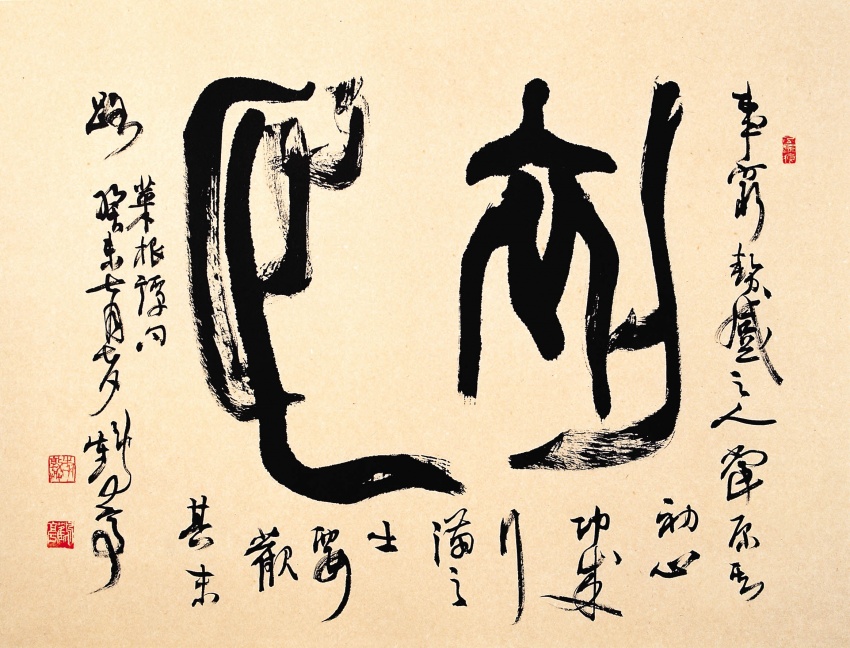 初心
事窮勢蹙之人當原其
初心
功成
行
滿之
士
要
觀
其末
路
菜根譚句
癸未七月七夕